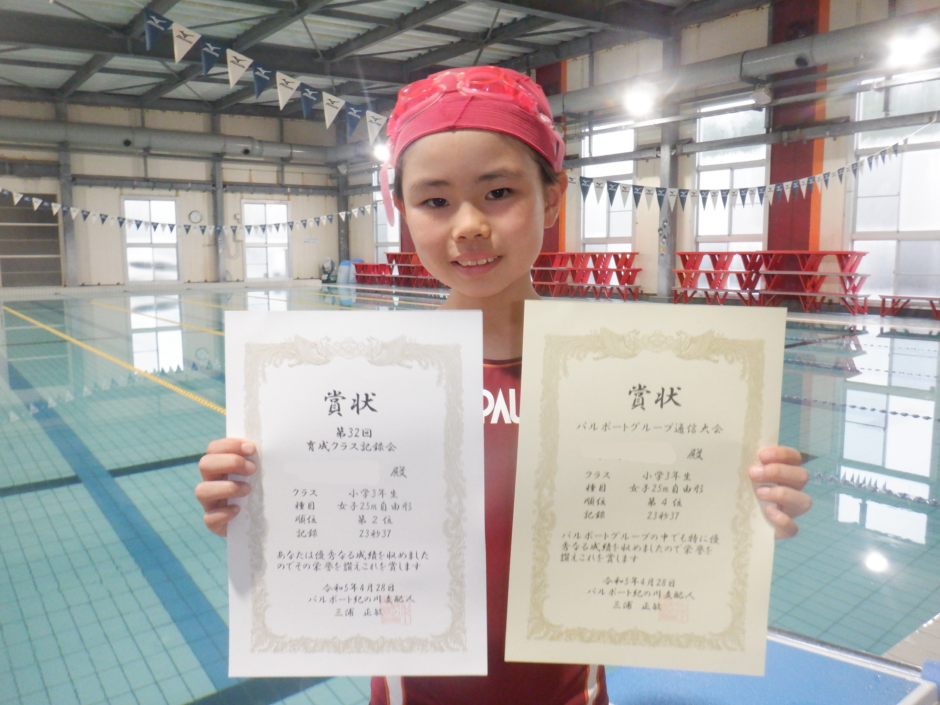 賞状
第32回
育成クラス記録会
殿
クラス 小学3年生
種目 女子25m自由形
順位 第2位
記録 23秒37
あなたは優秀なる成績を収めました
のでその栄誉を讃えこれを賞します
令和5年4月28日
パルポート紀の川支配人
三浦 正敏
賞状
パルポートグループ通信大会
殿
クラス 小学3年生
種目 女子25m自由形
順位 第4位
記録 23秒37
パルポートグループの中でも特に優
秀なる成績を収めましたので栄誉を
讃えこれを賞します
令和5年4月28日
パルポート紀の川支配人
三浦 正敏
PAL